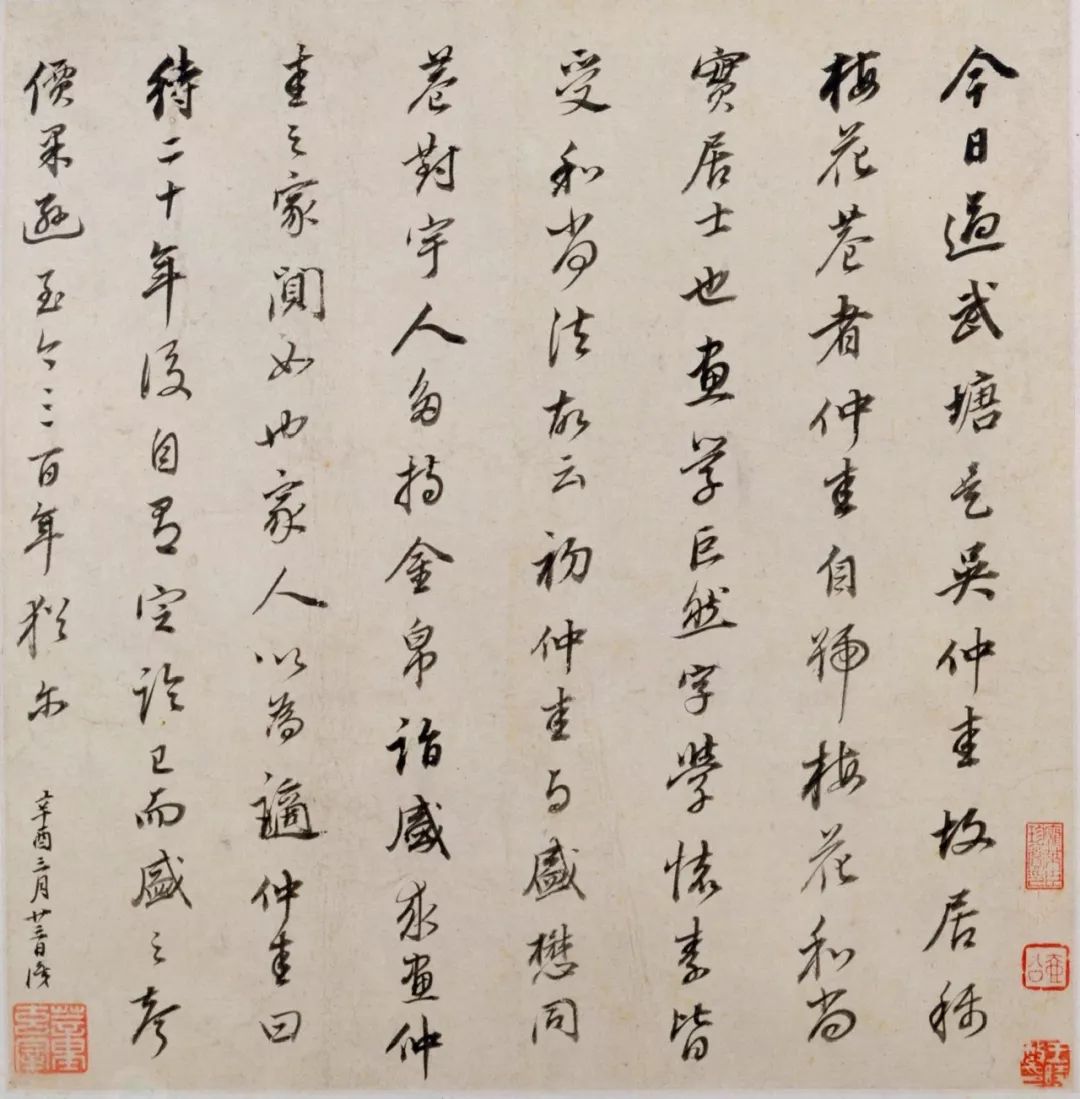 今日過武塘是吳仲圭故居稱
梅花菴者仲圭自號梅花和尚
實居士也畫學巨然字學懷素皆
受和尚法故云初仲圭與盛懋同
菴對宇人多持金帛詣盛求畫仲
圭之家闃如也家人以為謫仲圭曰
待二十年後自有定論已而盛之聲
價果遜至今三百年猶爾
辛酉三月廿三日識